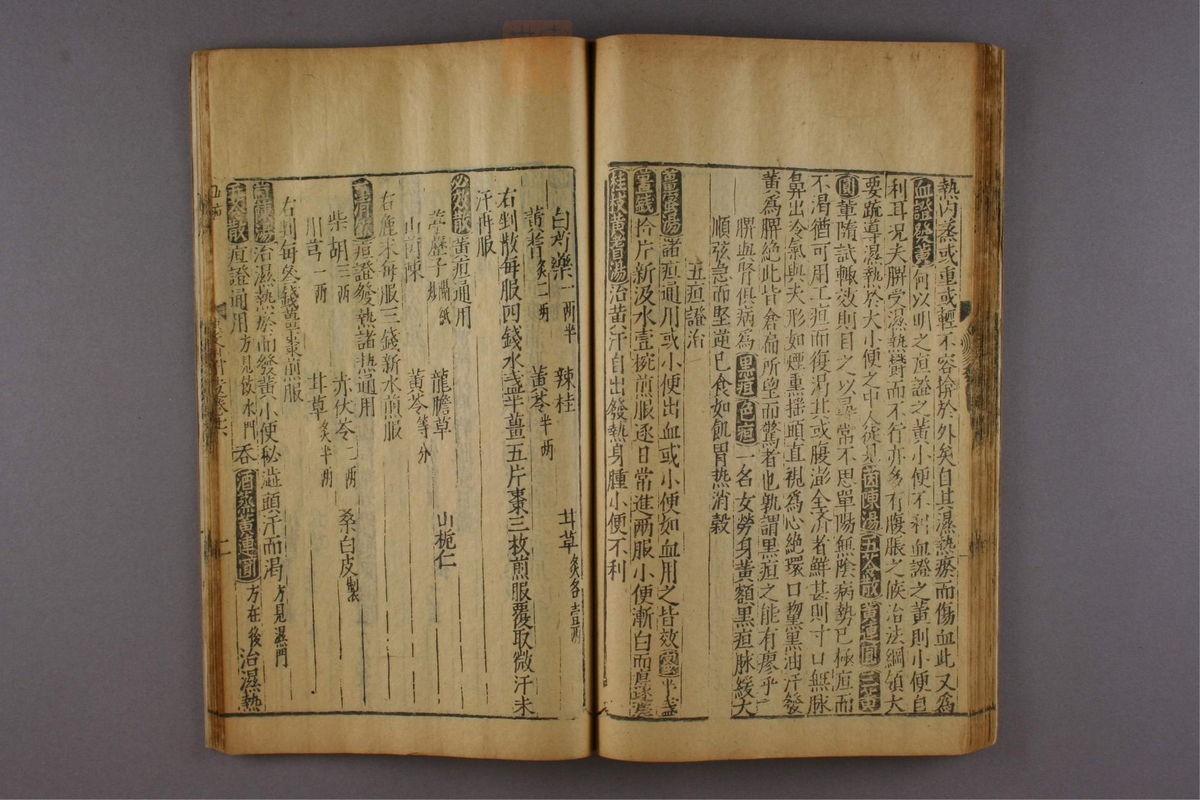 熱內蒸或重或輕不容揜於外矣自其濕熱瘀而傷血此又爲
血證發黃何以明之疸證之黃小便不利血證之黃則小便自
利耳況夫脾受濕熱鬱而不行亦多有腹脹之候治法綱領大
要疏導濕熱於大小便之中人徒見茵陳湯五苓散黃連圓三黃
圓輩隨試輒效則目之以尋常不思單陽無陰病勢已極疸而
不渴猶可用工疸而復渴其或腹澎全济者鮮甚則寸口無脉
鼻出冷氣與夫形如煙熏搖頭直視爲心絶環口黧黑油汗發
黃爲脾絶此皆倉扁所望而驚者也孰謂黑疸之能有瘳乎
脾與腎俱病爲黑疸色疸一名女勞身黃額黑疸脉緩大
順弦急而堅逆已食如飢胃热消穀
五疸證治
諸疸通用或小便出血或小便如血用之皆效半盞
拾片新汲水壹椀煎服逐日常進两服小便漸白而疸
桂枝黃耆湯治黃汗自出發熱身腫小便不利
白芍藥一两半 辣桂 甘草炙各壹两
黃耆炙二两 黃芩半两
右剉散每服四錢水盞半薑五片棗三枚煎服覆取微汗未
汗再服
必效散黃疸通用
葶藶子隔紙炒 龍膽草 山梔仁
山茵陳 黃芩等分
右麁末每服三錢新水煎服
疸證發熱諸热通用
柴胡三两 赤伏苓二两 桑白皮製
川芎一两 甘草炙半两
右剉每三錢薑棗煎服
治濕熱瘀而發黃小便秘澁頭汗而渴方見濕門
五苓散疸證通用方見飲水門吞酒蒸黃連圓方在後治濕熱